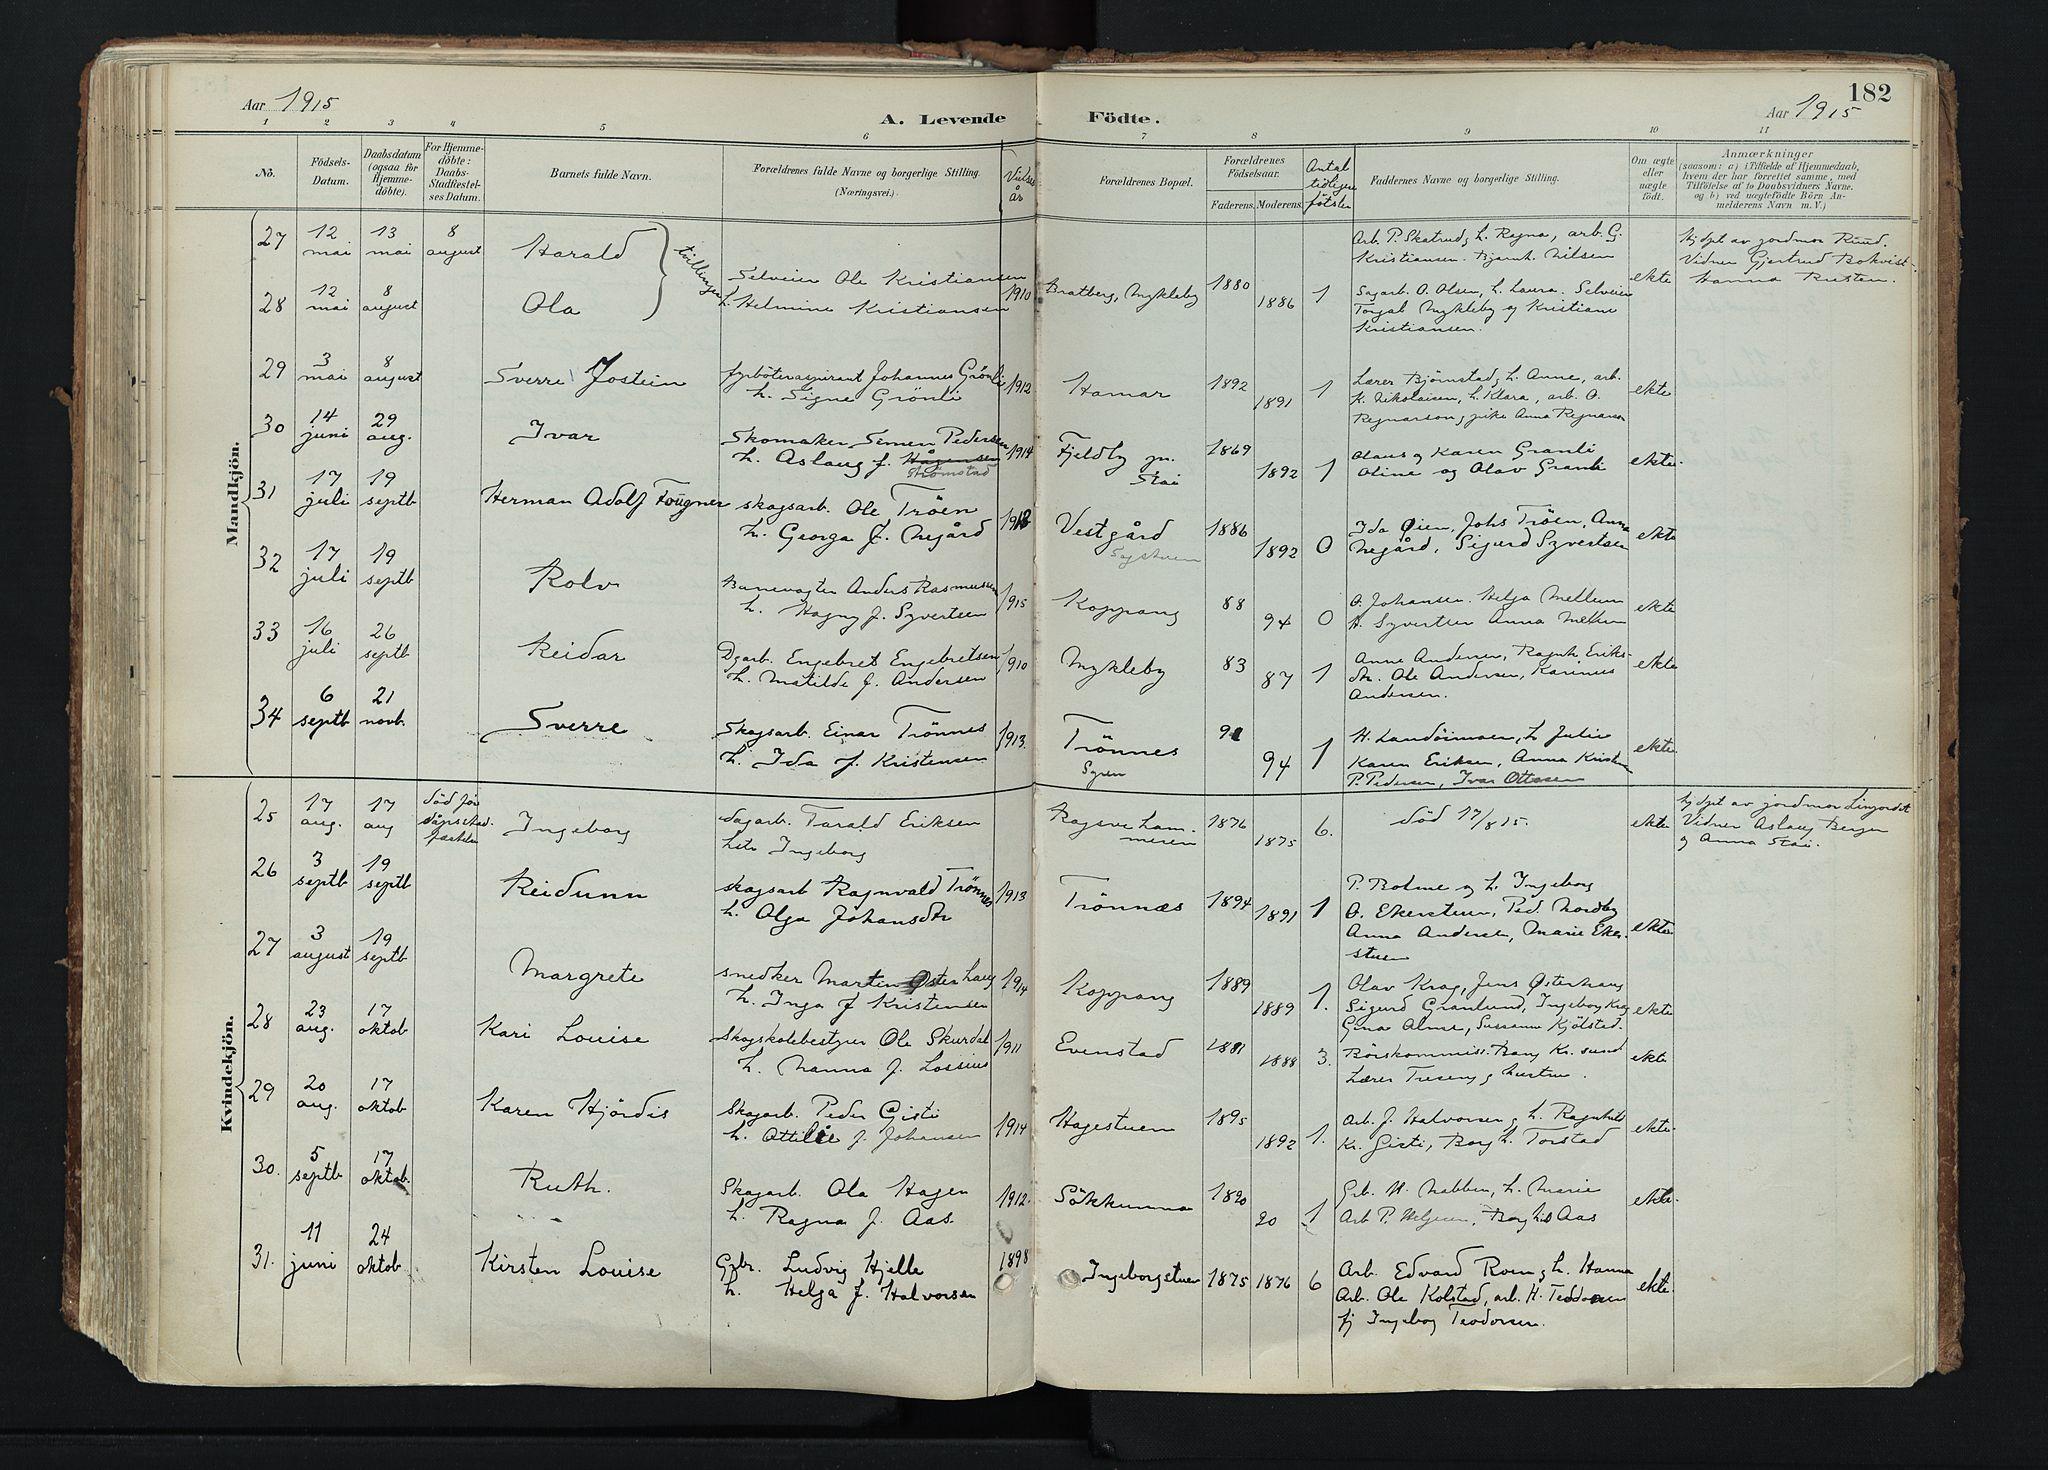 182
Aar 1915
A. Levende Födte.
Aar 1915
1 2 3 4 5 6 7 8 9 10 11
No.
Födsels-Datum.
Daabsdatum (ogsaa for Hjemme-döbte).
For Hjemme-döbte: Daabs-Stadfæstel-ses Datum.
Barnets fulde Navn.
Forældrenes fulde Navne og borgerlige Stilling.
(Næringsvei.)
Vielses år
Forældrenes Bopæl.
Forældrenes Födselsaar.
Faderens. Moderens.
Antal tidligere fötsler
Faddernes Navne og borgerlige Stilling.
Om ægte eller uægte født.
Anmærkninger
(saasom: a) i Tilfælde af Hjemmedaab, hvem der har forrettet samme, med Tilföielse af to Daabsvidners Navne. og b) ved uægtefödte Börn An-melderens Navn m. V.)
Mandkjön.
27 12 mai 13 mai 8 august Harald
tvillinger
Selveier Ole Kristiansen
h. Helmine Kristiansen 1910 Bratberg, Mykleby 1880 1886 1
Arb. P. Skatrud, h. Ragna, arb. G.
Kristiansen. Bjarnh. Nilsen
ekte
hjdpt av jordmor Ruud.
Vidner Gjertrud Bokvist
Hanna Rusten.
28 12 mai 8 august Ola
Sagarb. O. Olsen, h. Laura. Selveier
Torgal Mykleby og Kristiane
Kristiansen.
29 3 mai 8 august Sverre Jostein
fyrböteraspirant Johannes Grönli
h. Signe Grönli 1912 Hamar 1892 1891 1
Lærer Bjørnstad, h. Anne, arb.
K. Nikolaisen, h. Klara, arb. O.
Regnarson, pike Anna Regnarson
ekte
30 14 juni 29 aug. Ivar
Skomaker Simen Pedersen
h. Aslaug f. Hågensen
Strömstad
1914 Fjeldby pr. Stai 1869 1892 1
Olaus og Karen Granli
Oline og Olav Granli
ekte
31 17 juli 19 septb Herman Adolf Fougner
skogsarb. Ole Tröen
h. Georga f. Negård
1913 Vestgård 1886 1892 0
Ida Øien, Johs Tröen, Anna
Negård, Sigurd Syvertsen
ekte
32 17 juli 19 septb Rolv
Banevogter Anders Rasmussen
h. Hagny f. Syvertsen 1915 Koppang 88 94 0
O. Johansen. Helga Mellum
H. Syvertsen Anna Mellum
ekte
33 16 juli 26 septb Reidar
Dgarb. Engebret Engebretsen
h. Matilde f. Andersen 1910 Mykleby 83 87 1
Anne Andersen, Ragnh. Eriks-
dtr. Ole Andersen, Karinius
Andersen.
ekte
34 6 septb 21 novb. Sverre
Skogsarb. Einar Trönnes
h. Ida f. Kristensen 1913. Trönnes 94 1
H. Landsimoen, h Julie
Karen Eriksen, Anna Kristen
P. Pedersen, Ivar Ottosen
ekte
Kvindekjön.
25 17 aug. 17 aug död för dåpsstad-festelse Ingeborg
dagarb. Tarald Eriksen
hstr Ingeborg
1876 1875 6.
död 17/8 15.
ekte
hjdpt av jordmor Linjordet
Vidner Aslaug Berger
og Anna Stai.
26 3 septb 19 septb Reidunn
skogsarb Ragnvald Trönnes
h. Olga Johansdtr 1913 Trönnæs 1894 1891 1
P. Bolme og h. Ingeborg
O. Ekerstuen, Ped. Nordby
Anna Andersen, Marie Eker-
stuen
ekte
27 3 august 19 septb Margrete
snedker Marten Østerhaug
h. Inga f Kristensen 1914 Koppang 1889 1889 1.
Olav Krog, Jens Østerhaug
Sigurd Granlund, Ingeborg Krog
Gina Alme, Susanne Kjölstad.
ekte
28 23 aug. 17 oktob Kari Louise
Skogskolebestyrer Ole Skurdal
h. Nanna f. Lossius 1911 Evenstad 1881 1888 3.
Börskommiss. Bang Kr. sund
Lærer Treseng, hustru.
ekte
29 20 aug. 17 oktob Karen Hjördis
Skogarb. Peder Gisti
h. Attilie f. Johansen 1914 Hagestuen 1895 1892 1.
Arb. J. Halvorsen, h. Ragnhild
Kr. Gisti, Borgh. Torstad
ekte
30. 5 septb 17 oktob. Ruth.
Skogarb. Ola Hagen
h. Ragna f. Aas. 1912. Sökkunna 1890 90 1
Grb. H. Nabben, h. Marie
Arb P. Helgesen, Borghild Aas
ekte
31. 11 juni 24 oktob Kirsten Louise
Grbr. Ludvig Hjelle
h. Helga f. Halvorsen 1898 Ingeborgstuen 1875 1876 6
Arb. Edvard Roen, h. Hanna
Arb. Ole Kolstad, arb. H. Teodorsen
fj Ingeborg Teodorsen.
ekte.